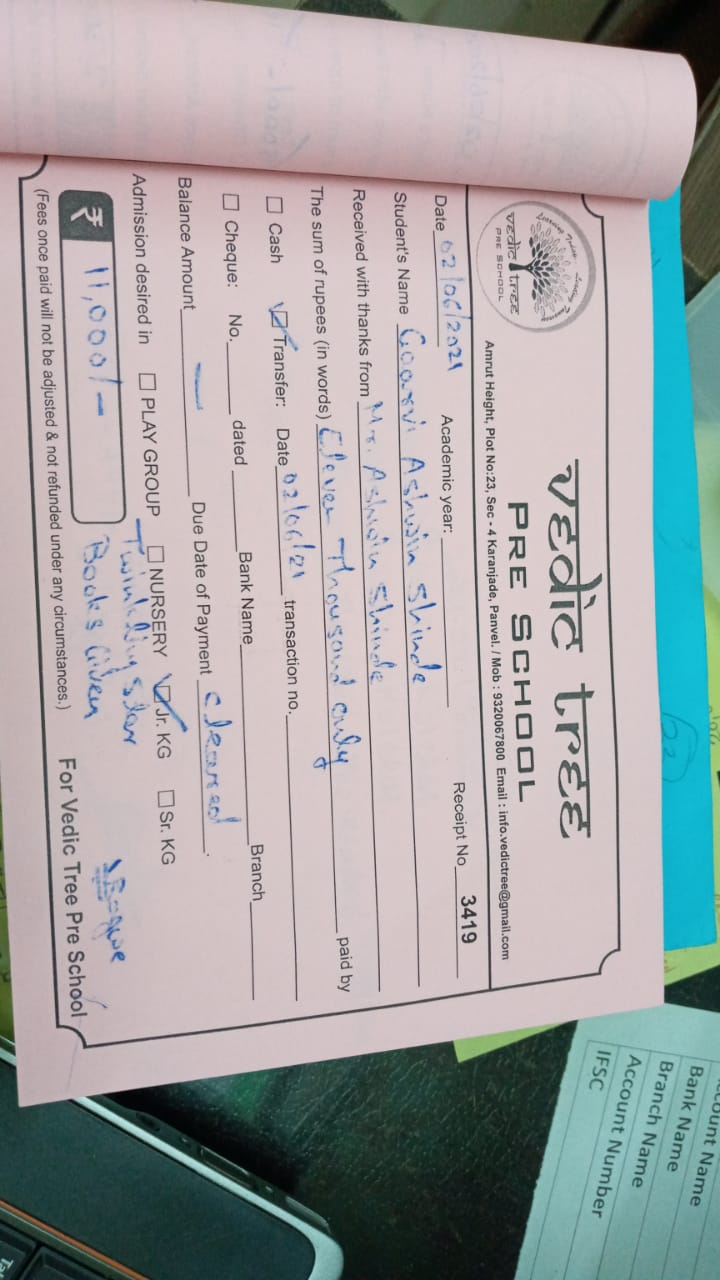 vedic tree
PRE SCHOOL
Learning Today... Leading Tomorrow
vedic tree
PRE SCHOOL
Amrut Height, Plot No:23, Sec - 4 Karanjade, Panvel. / Mob : 9320067800 Email : info.vedictree@gmail.com
Date 02/06/2021 Academic year: Receipt No. 3419
Student's Name Goarvi Ashwin Shinde
Received with thanks from Mr. Ashwin Shinde
The sum of rupees (in words) Eleven Thousand only paid by
Cash Transfer: Date 02/06/21 transaction no.
Cheque: No. dated Bank Name Branch
Balance Amount — Due Date of Payment cleared.
Admission desired in PLAY GROUP NURSERY Jr. KG Sr. KG
Twinkling Star
₹ 11,000/- Books Given
For Vedic Tree Pre School
(Fees once paid will not be adjusted & not refunded under any circumstances.)
Account Name
Bank Name
Branch Name
Account Number
IFSC